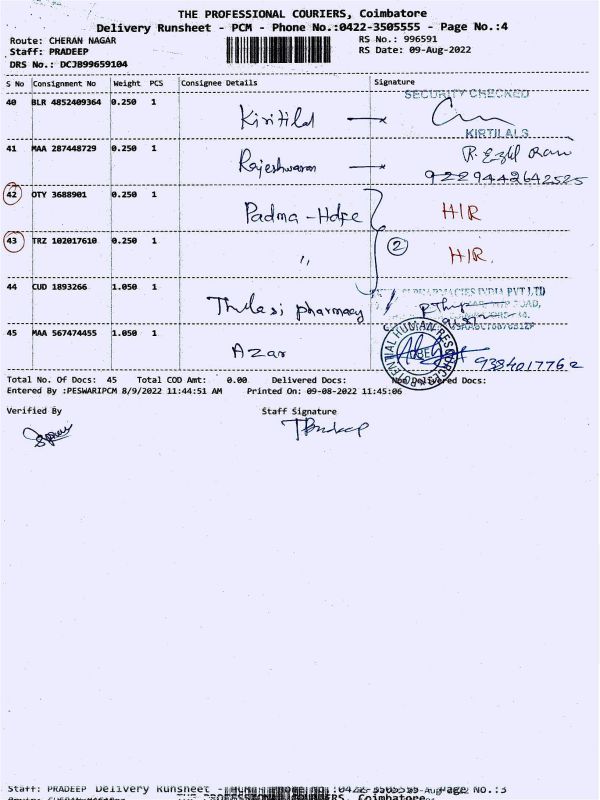 THE PROFESSIONAL COURIERS, Coimbatore
Delivery Runsheet - PCM - Phone No.:0422-3505555 - Page No.:4
Route: CHERAN NAGAR RS No.: 996591
Staff: PRADEEP RS Date: 09-Aug-2022
DRS No.: DCJB99659104
S No Consignment No Weight PCS Consignee Details Signature
SECURITY CHECKED
40 BLR 4852409364 0.250 1 Kiritilal
KIRTILALS
41 MAA 287448729 0.250 1 Rajeshwaran
42 OTY 3688901 0.250 1 Padma - Hdfc H/R
43 TRZ 102017610 0.250 1 " 2 H/R.
44 CUD 1893266 1.050 1 Thulasi pharmacy
INDIA PVT LTD
45 MAA 567474455 1.050 1 Azar
POTENTIAL HUMAN RESOURCE
9384017762
Total No. Of Docs: 45 Total COD Amt: 0.00 Delivered Docs: Non Delivered Docs:
Entered By :PESWARIPCM 8/9/2022 11:44:51 AM Printed On: 09-08-2022 11:45:06
Verified By Staff Signature
Staff: PRADEEP Delivery Runsheet Page No.:3